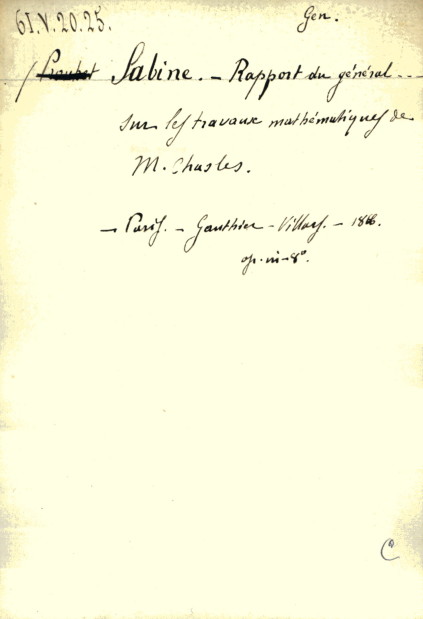 61.V.20.25.
Gen.
Sabine. - Rapport du général ...
sur les travaux mathématiques de
M. Chasles.
- Paris. - Gauthier-Villars. - 1866.
op. in-8°.
C